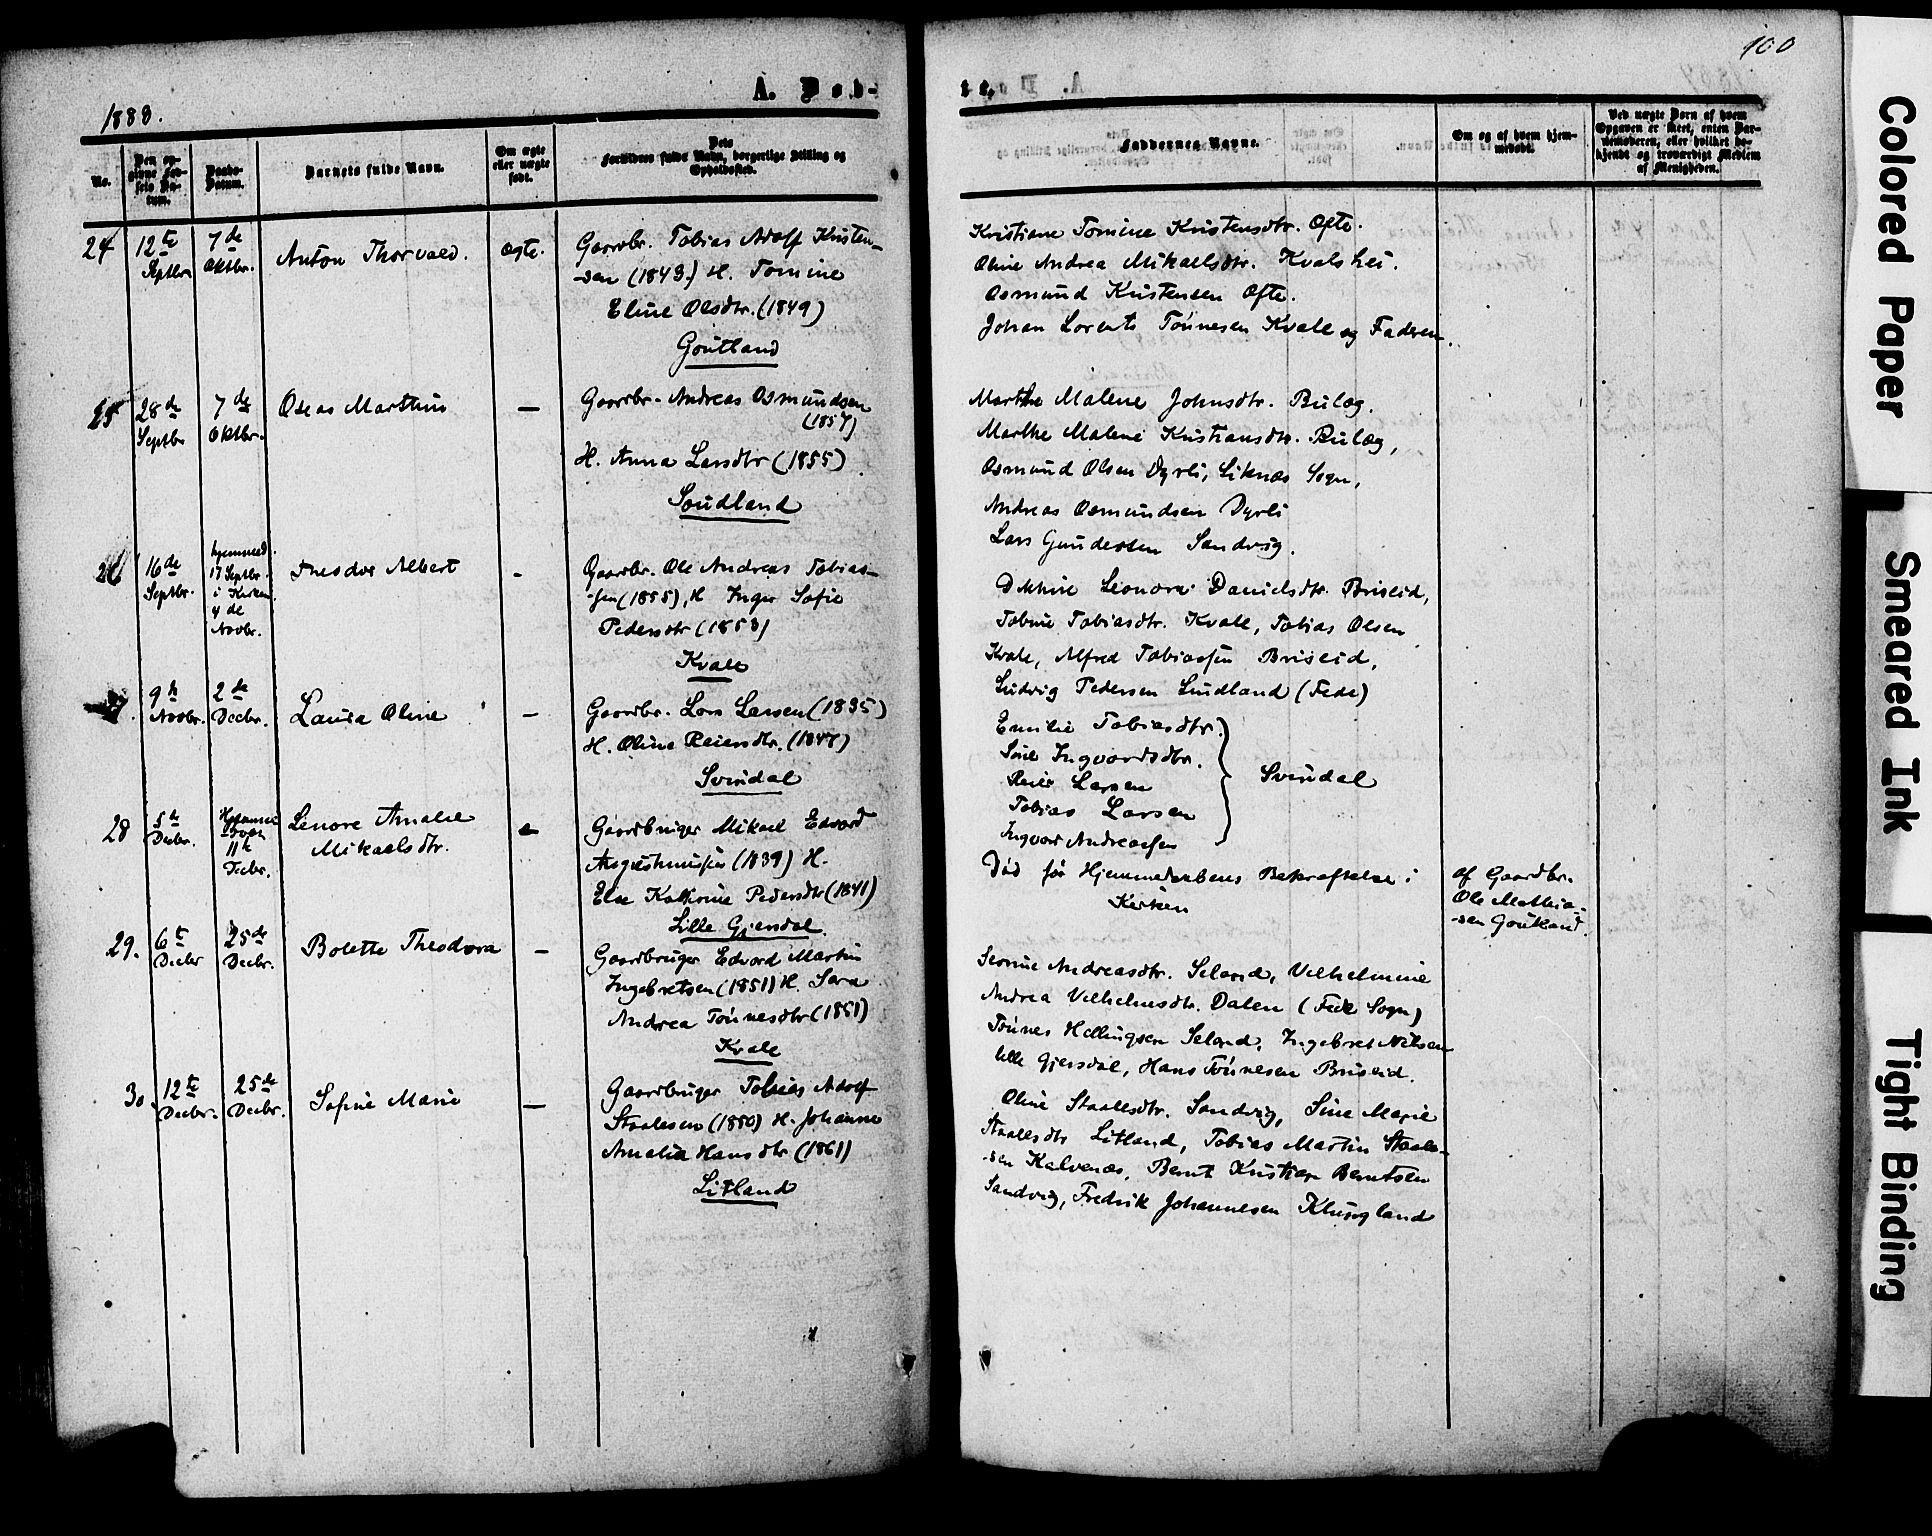 100
1883.
A. Døb-
te.
No.
Den op-
givne Fød-
sels Da-
tum.
Daabs-
Datum.
Barnets fulde Navn.
Om ægte
eller uægte
født.
Dets
Forældres fulde Navn, borgerlige Stilling og
Opholdssted.
Faddernes Navne.
Om og af hvem hjem-
medøbt.
Ved uægte Børn af hvem
Opgaven er skeet, enten Bar-
nemoderen, eller hvilket be-
kjendt og troværdigt Medlem
af Menigheden.
24
12te
Septbr.
7de
Oktbr.
Anton Thorvald.
Ægte.
Gaardbr. Tobias Adolf Kristen-
sen (1843) H. Tomine
Eline Olsdtr. (1849)
Goutland
Kristiane Tomine Kristensdtr. Ofte.
Oline Andrea Mikaelsdtr. Kvalshei.
Osmund Kristensen Ofte.
Johan Lorents Tønnesen Kvale og Faderen.
25
28de
Septbr
7de
Oktbr.
Oseas Marthin
—
Gaardbr. Andreas Osmundsen
(1857)
H. Anna Larsdtr (1855)
Soudland
Marthe Malene Johnsdtr. Bulæg.
Marthe Malene Kristiansdtr. Bulæg,
Osmund Olsen Dyrli, Liknæs Sogn,
Andreas Osmundsen Dyrli
Lars Gundersen Sandvig.
26
16de
Septbr.
hjemmed.
17 Septbr.
i Kirken
4de
Novbr.
Theodor Albert
-
Gaardbr. Ole Andreas Tobias-
sen (1855), H Inger Sofie
Pedersdtr (1853)
Kvale
Leonora Danielsdtr. Briseid,
Tobine Tobiasdtr. Kvale, Tobias Olsen
Kvale, Alfred Tobiassen Briseid,
Ludvig Pedersen Lindland (Fede)
27.
9de
Novbr.
2de
Decbr.
Laura Oline
—
Gaardbr. Lars Larsen (1835)
H. Oline Reiersdtr. (1847)
Svindal
Emilie Tobiasdtr.
Sine Ingvardsdtr.
Reier Larsen
Tobias Larsen
Ingvar Andreassen
Svindal
28
5te
Decbr.
Hjemme
døbt
11te
Decbr.
Lenore Amalie
Mikaelsdtr.
—
Gaardbruger Mikael Edvard
Augustinussen (1839) H.
Else Katrine Pedersdtr (1841)
Lille Gjersdal.
Død før Hjemmedaabens Bekræftelse i
Kirken
af Gaardbr.
Ole Mathia-
sen Goutland.
29.
6te
Decbr
25de
Decbr.
Bolette Theodora
—
Gaardbruger Edvard Martin
Ingebretsen (1851) H. Sara
Andrea Tønnesdtr (1851)
Kvale
Serine Andreasdtr. Seland, Vilhelmine
Andrea Vilhelmsdtr. Dalen (Fede Sogn)
Tønnes Hellingsen Seland, Ingebret Nilsen
lille Gjersdal, Hans Tønnesen Briseid.
30
12te
Decbr.
25de
Decbr.
Sofine Marie
—
Gaardbruger Tobias Adolf
Staalesen (1850) H. Johanne
Amalia Hansdtr (1861)
Litland
Oline Staalesdtr. Sandvig, Sine Marie
Staalesdtr Litland, Tobias Martin Staale-
sen Kalvenæs, Bernt Kristian Berntsen
Sandvig, Fredrik Johannesen Klungland
Colored Paper
Smeared Ink
Tight Binding